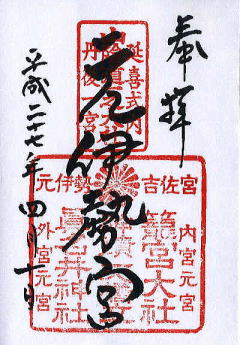 奉拝
延喜式内
丹後一宮
元伊勢宮
平成二十七年四月
元伊勢
吉佐宮
内宮元宮
籠宮大社
眞名井神社
外宮元宮